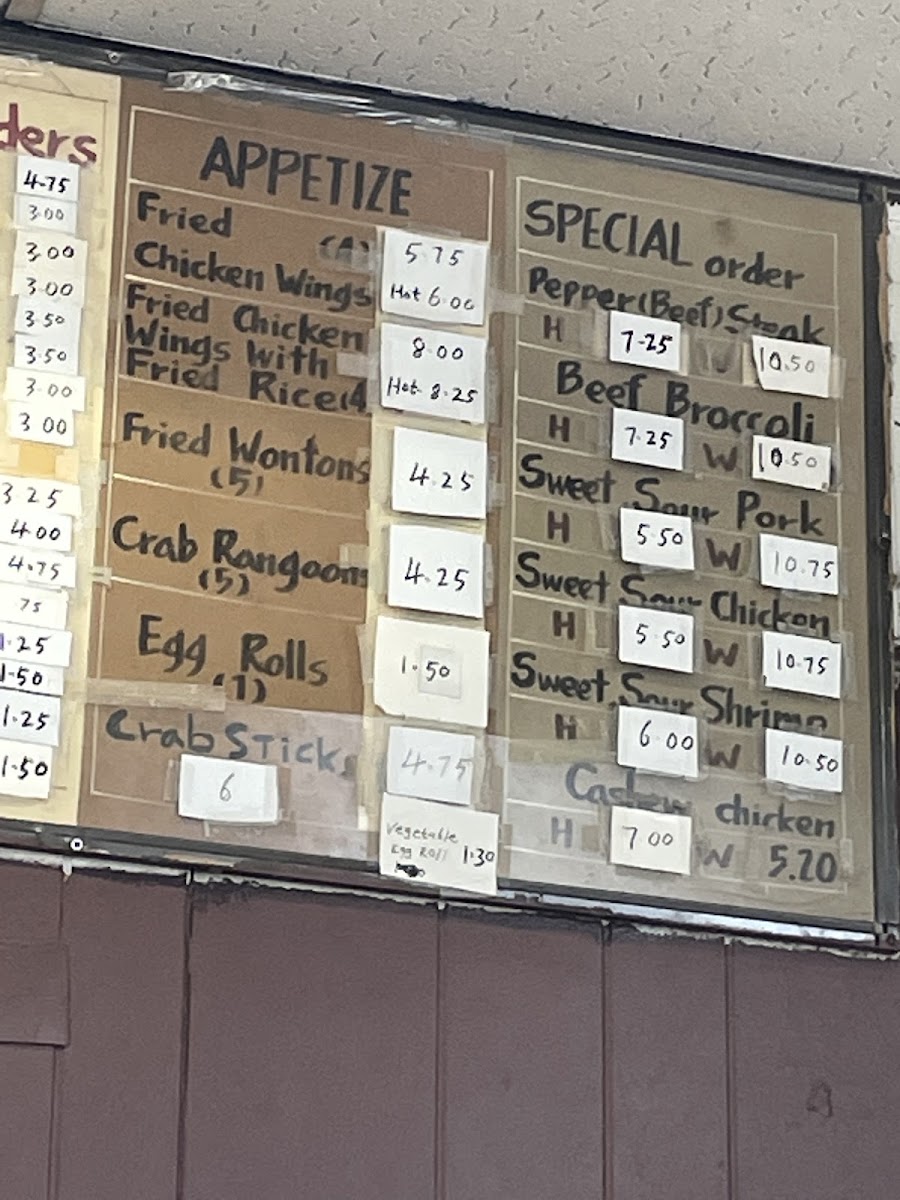 ders
4.75
3.00
3.00
3.00
3.50
3.50
3.00
3.00
3.25
4.00
4.75
75
1.25
1.50
1.25
1.50
APPETIZE
Fried (4) 5.75
Chicken Wings Hot 6.00
Fried Chicken 8.00
Wings With
Fried Rice(4 Hot 8.25
Fried Wontons 4.25
(5)
Crab Rangoons 4.25
(5)
Egg Rolls 1.50
(1)
Crab Stick 4.75
6
Vegetable
Egg Roll 1.30
SPECIAL order
Pepper(Beef)Steak
H 7.25 W 10.50
Beef Broccoli
H 7.25 W 10.50
Sweet Sour Pork
H 5.50 W 10.75
Sweet Sour Chicken
H 5.50 W 10.75
Sweet Sour Shrimp
H 6.00 W 10.50
Cashew chicken
H 7.00 W 5.20